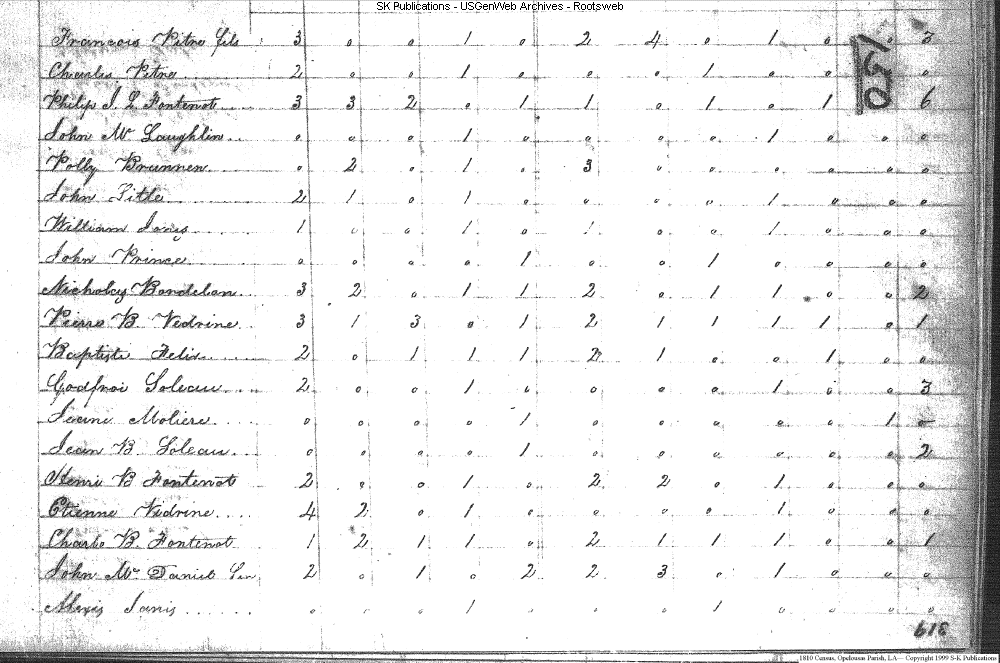 SK Publications - USGenWeb Archives - Rootsweb
Francois Pitre fils 3 0 0 1 0 2 4 0 1 0 0 3
150
Charles Pitre 2 0 0 1 0 0 0 1 0 0 0 0
Philip J. L Fontenot 3 3 2 0 1 1 0 1 0 1 0 6
John Mc Laughlin 0 0 0 1 0 0 0 0 1 0 0 0
Polly Brunnen 0 2 0 1 0 3 0 0 0 0 0 0
John Title 2 1 0 1 0 0 0 0 1 0 0 0
William Janis 1 0 0 1 0 1 0 0 1 0 0 0
John Prince 0 0 0 0 1 0 0 1 0 0 0 0
Nicholas Bondelon 3 2 0 1 1 2 0 1 1 0 0 2
Pierre B Vedrine 3 1 3 0 1 2 1 1 1 1 0 1
Baptiste Felix 2 0 1 1 1 2 1 0 0 1 0 0
Godfroi Soleau 2 0 0 1 0 0 0 0 1 0 0 3
Jeane Moliere 0 0 0 0 1 0 0 0 0 0 1 0
Jean B Soleau 0 0 0 0 1 0 0 0 0 0 0 2
Henri B Fontenot 2 0 0 1 0 2 2 0 1 0 0 0
Etienne Vedrine 4 2 0 1 0 0 0 0 1 0 0 0
Charle B. Fontenot 1 2 1 1 0 2 1 1 1 0 0 1
John Mc Daniel Sen 2 0 1 0 2 2 3 0 1 0 0 0
Alexis Janis 0 0 0 1 0 0 0 1 0 0 0 0
618
1810 Census, Opelousas Parish, LA -- Copyright 1999 S-K Publications